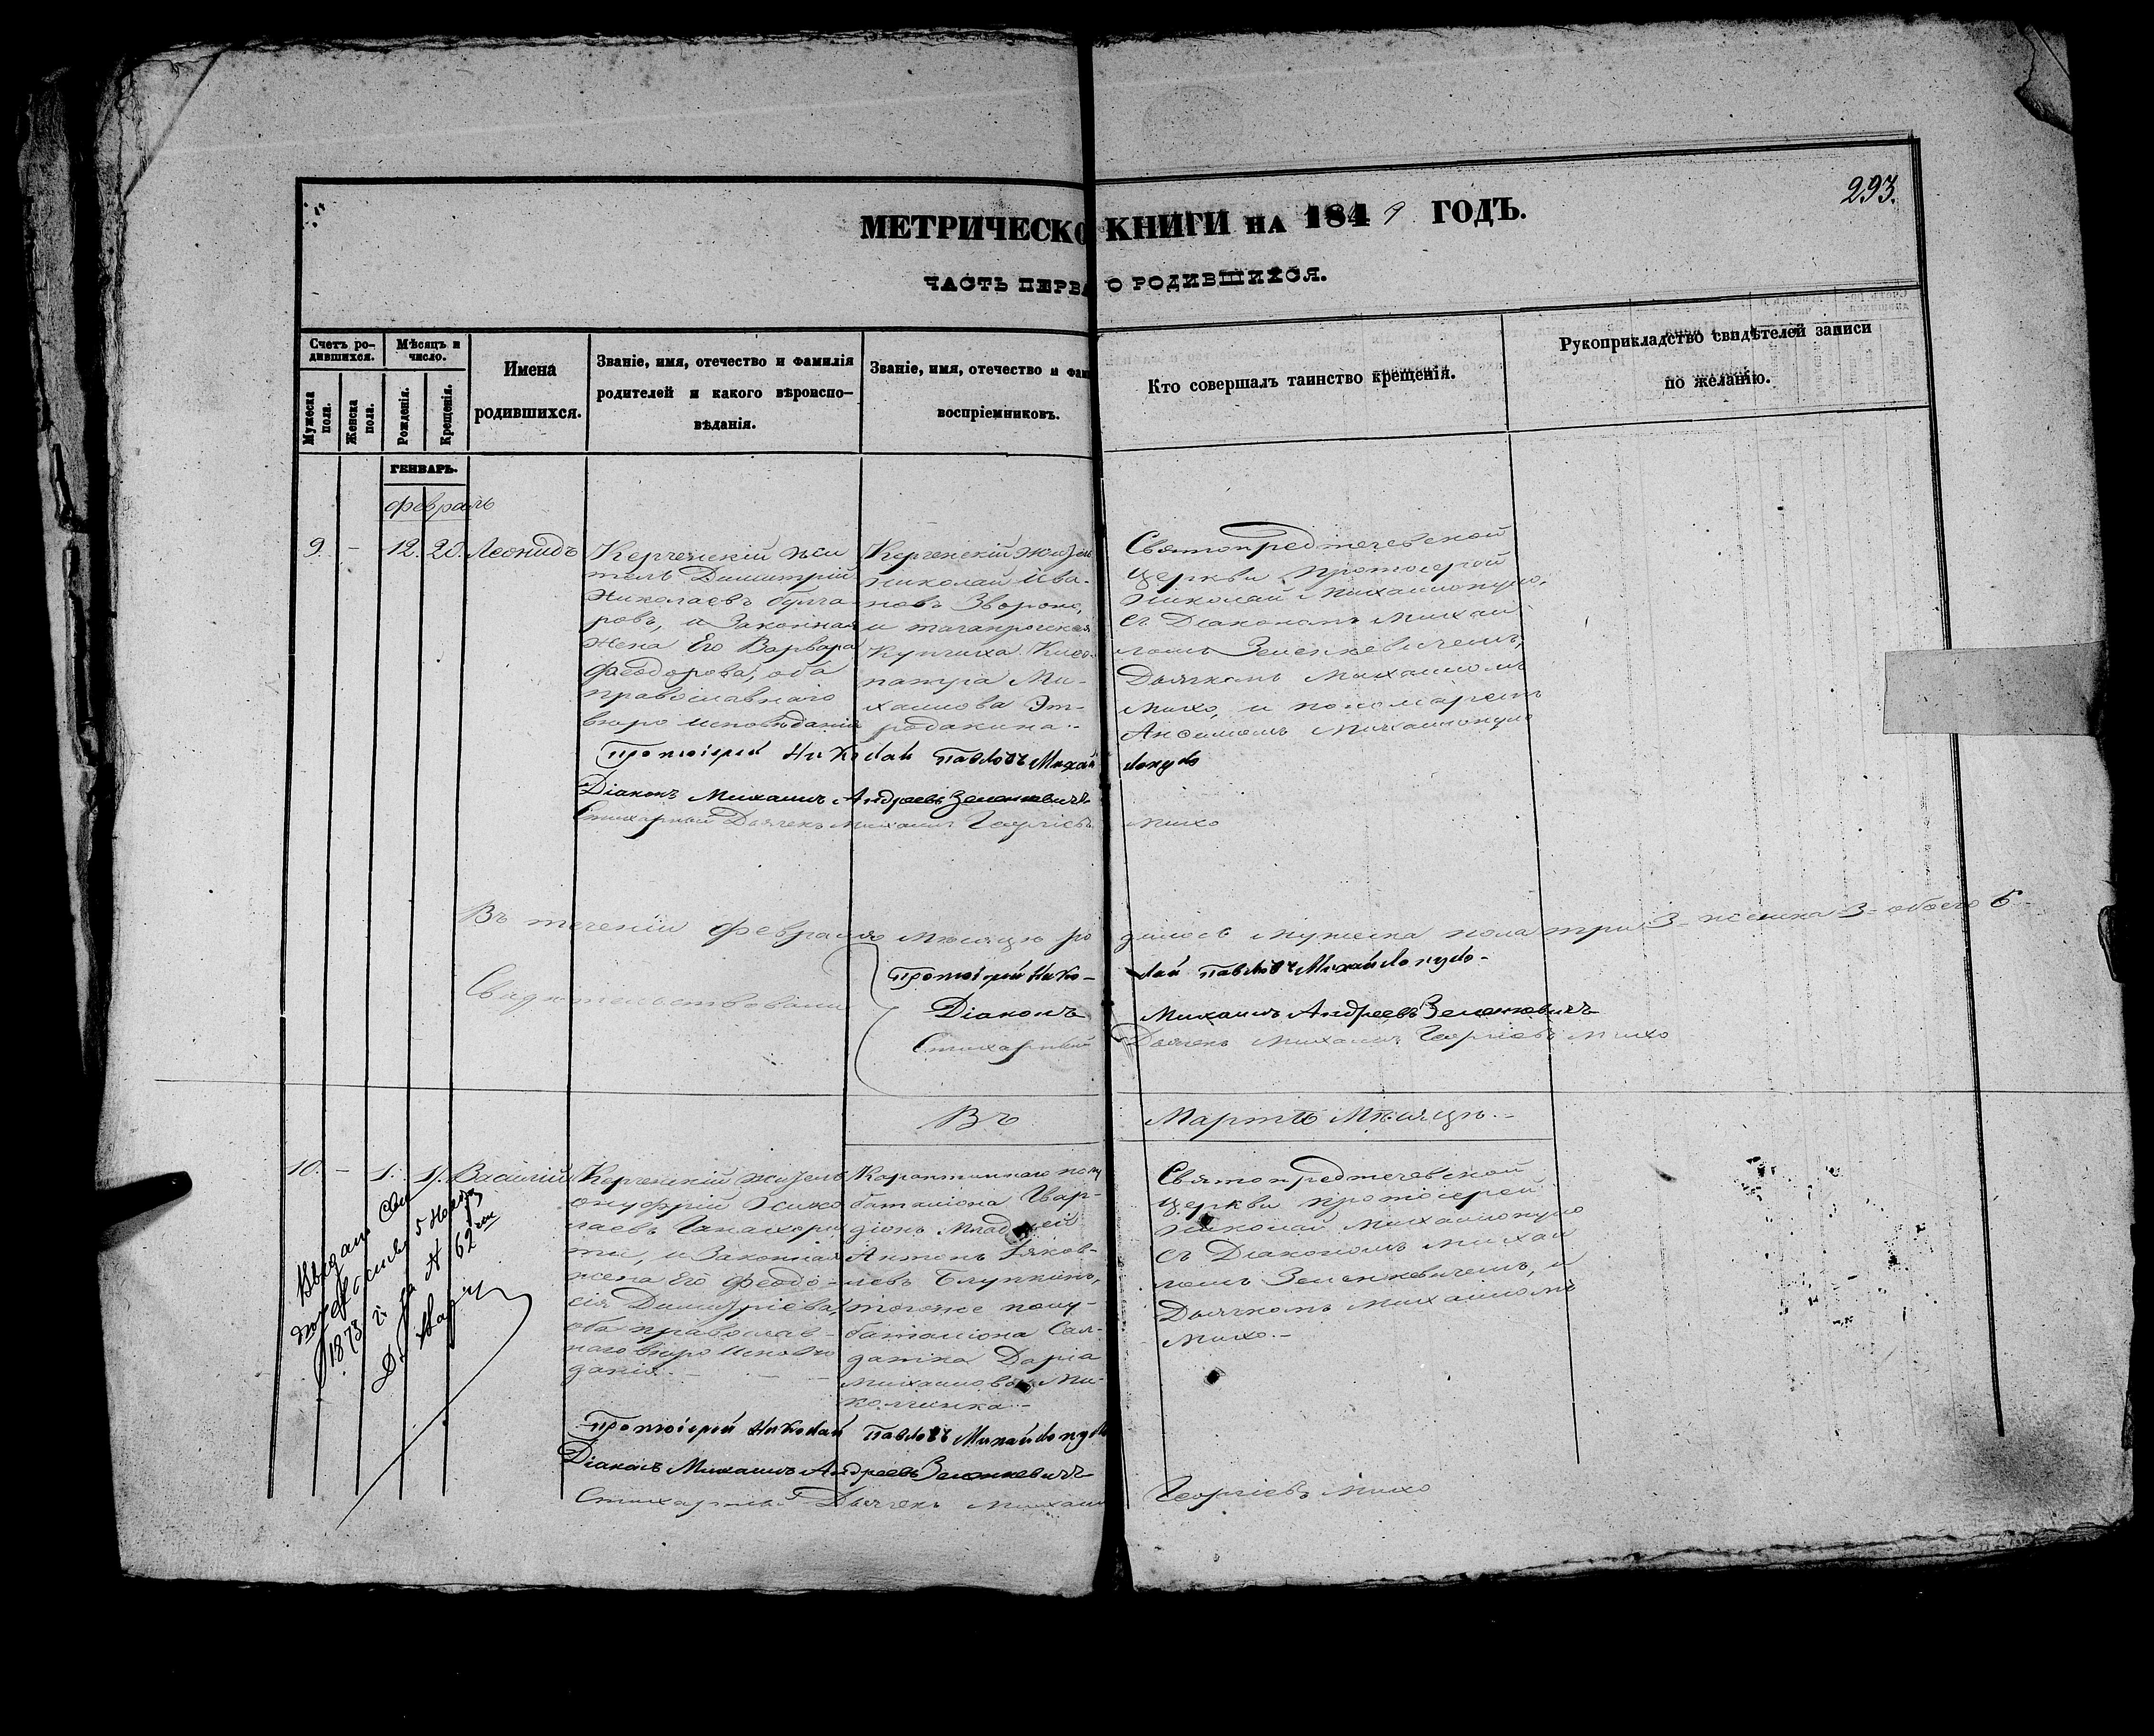 293.
МЕТРИЧЕСКО КНИГИ НА 1849 ГОДЪ.
ЧАСТЬ ПЕРВА О РОДИВШИХСЯ.
Счетъ ро-
дившихся.
Мужеска
пола.
Женска
пола.
Мѣсяцъ и
число.
Рожденія.
Крещенія.
Имена
родившихся.
Званіе, имя, отечество и фамилія
родителей и какого вѣроиспо-
вѣданія.
Званіе, имя, отечество и фам
воспріемниковъ.
Кто совершалъ таинство крещенія.
Рукоприкладство свидѣтелей записи
по желанію.
ГЕНВАРЬ.
Февраль
9. - 12. 20. Леонидъ
Керченскій жи
тель Димитрій
Николаевъ Булга-
ровъ, и Законная
жена Его Варвара
Феодорова, оба
православнаго
вѣро исповѣданія
Керченскій житель
Николай Ива-
новъ Звороно,
и таганрогская
купчиха Клео-
патра Ми-
хайлова
Святопредтечевской
Церкви Протоіерей
Николай Михайлопуло,
съ Діакономъ Михаи
ломъ Зеленкевичемъ,
Дьячкомъ Михаиломъ
Михо, и пономаремъ
Михайлопуло
Протоіерей Николай Павловъ Михай лопуло
Діаконъ Михаилъ Андреевъ Зеленкевичъ
Стихарный Дьячекъ Михаилъ Георгіевъ Михо
Въ теченіи Февраля мѣсяца ро дилось мужеска пола три 3 - женска 3 - обоего 6 -
Свидѣтельствовали
Протоіерей Нико- лай Павловъ Михайлопуло -
Діаконъ Михаилъ Андреевъ Зеленкевичъ
Стихарный Дьячекъ Михаилъ Георгіевъ Михо
Въ Мартѣ Мѣсяцѣ. -
10. - 1. Василій
Керченскій житель
Онуфрій Нико
лаевъ
ти, и Законная
жена Его Феодо-
сія Димитріева,
оба православ-
наго вѣро исповѣ
данія. -
Карантиннаго полу
баталіона Гвар-
діонъ Младшій
Антонъ Яков-
левъ
тогоже полу-
баталіона Сол-
датка Дарія
Михайлова
Святопредтечевской
Церкви Протоіерей
Николай Михайлопуло
съ Діакономъ Михаи
ломъ Зеленкевичемъ, и
Дьячкомъ Михаиломъ
Михо. -
1873 г. за N 62
Протоіерей Николай Павловъ Михайлопуло
Діаконъ Михаилъ Андреевъ Зеленкевичъ
Стихарный Дьячекъ Михаилъ Георгіевъ Михо